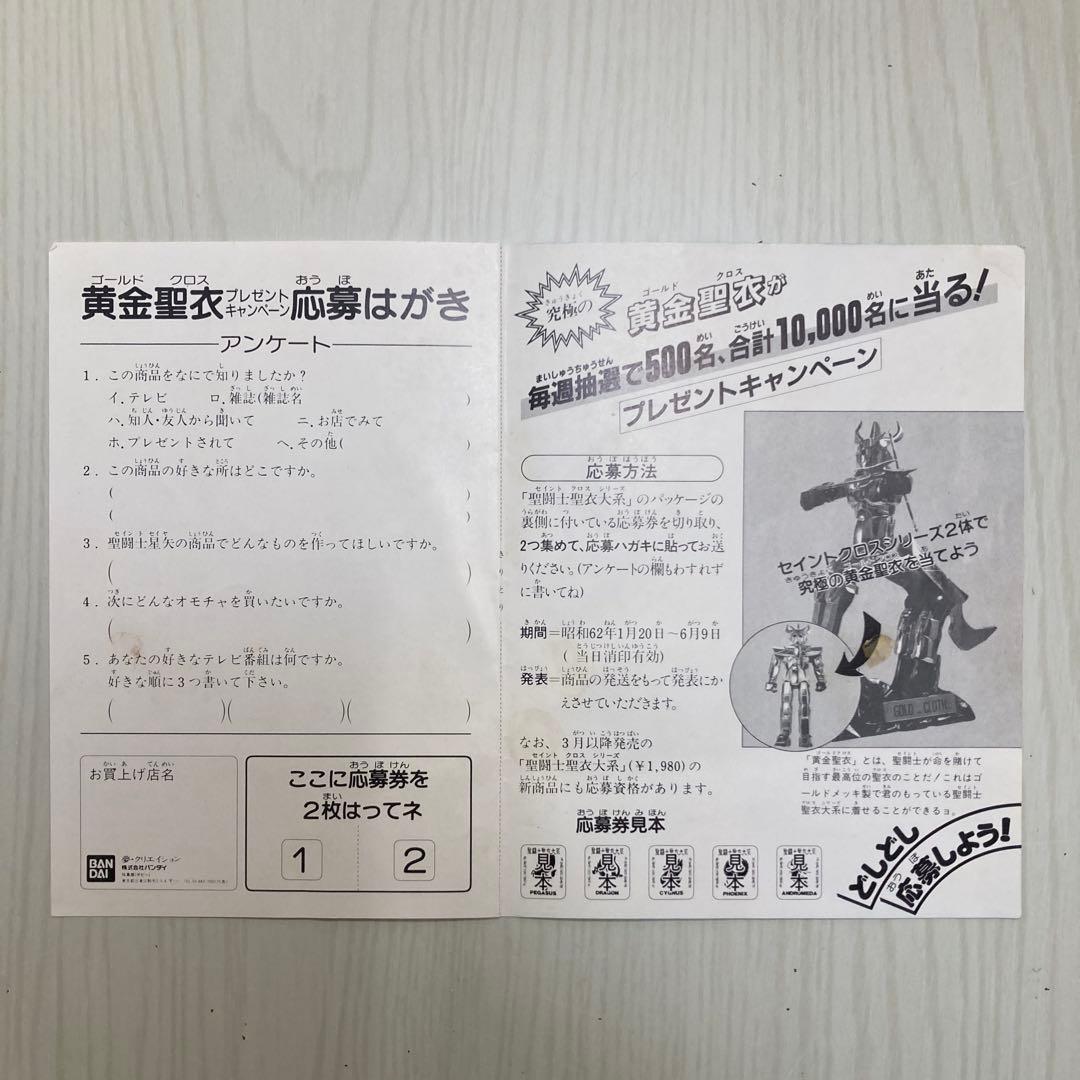 黄金聖衣プレゼントキャンペーン応募はがき
アンケート
1．この商品をなにで知りましたか？
イ.テレビ　ロ.雑誌(雑誌名　)
ハ.知人・友人から聞いて　ニ.お店でみて
ホ.プレゼントされて　ヘ.その他(　)
2．この商品の好きな所はどこですか。
(　)
(　)
3．聖闘士星矢の商品でどんなものを作ってほしいですか。
(　)
4．次にどんなオモチャを買いたいですか。
(　)
5．あなたの好きなテレビ番組は何ですか。
好きな順に3つ書いて下さい。
(　)(　)(　)
お買上げ店名
BAN
DAI
夢・クリエイション
株式会社バンダイ
ここに応募券を
2枚はってネ
1
2
きりとり
究極の
黄金聖衣が
毎週抽選で500名、合計10,000名に当る!
プレゼントキャンペーン
応募方法
「聖闘士聖衣大系」のパッケージの
裏側に付いている応募券を切り取り、
2つ集めて、応募ハガキに貼ってお送
りください。(アンケートの欄もわすれず
に書いてね)
期間＝昭和62年1月20日～6月9日
(当日消印有効)
発表＝商品の発送をもって発表にか
えさせていただきます。
なお、3月以降発売の
「聖闘士聖衣大系」(￥1,980)の
新商品にも応募資格があります。
応募券見本
見本
PEGASUS
見本
DRAGON
見本
CYGNUS
見本
PHOENIX
見本
ANDROMEDA
セイントクロスシリーズ2体で
究極の黄金聖衣を当てよう
GOLD CLOTH
「黄金聖衣」とは、聖闘士が命を賭けて
目指す最高位の聖衣のことだ!これはゴ
ールドメッキ製で君のもっている聖闘士
聖衣大系に着せることができるョ。
どしどし
応募しよう!